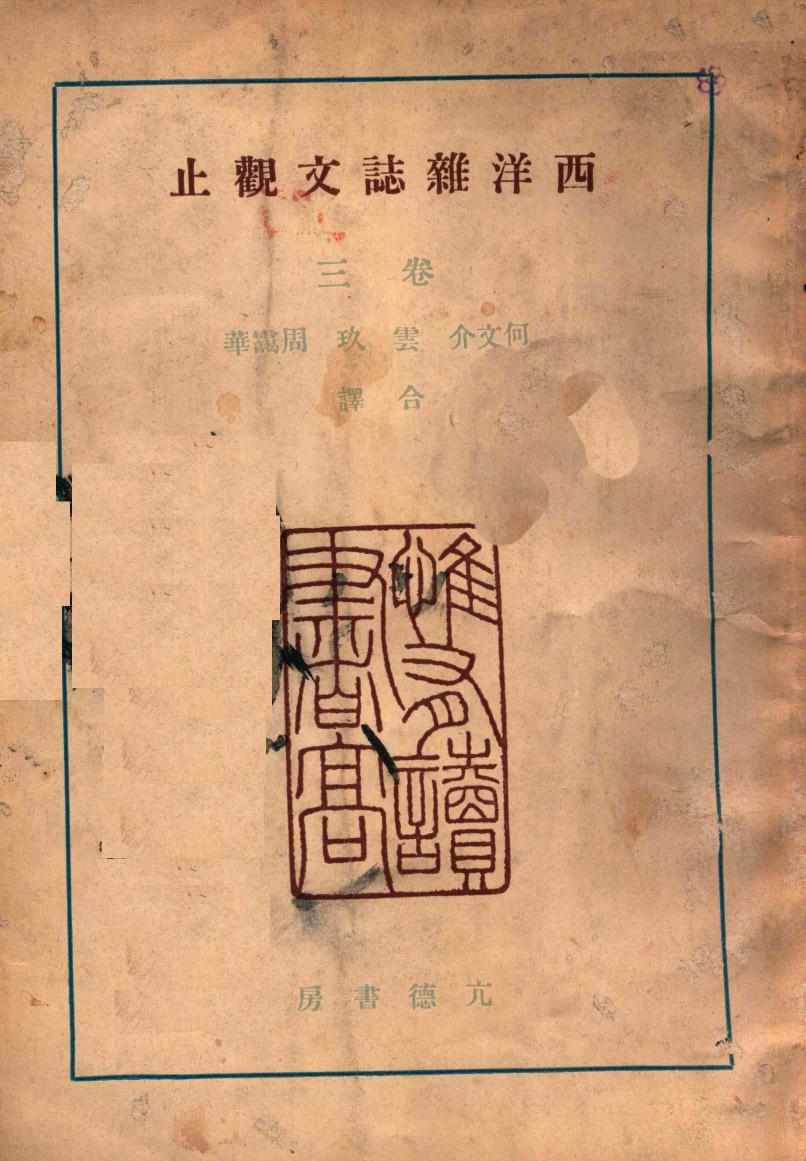 西洋雜誌文觀止
卷三
何文介 雲玖 周黧華
合譯
惟有讀
書高
亢德書房